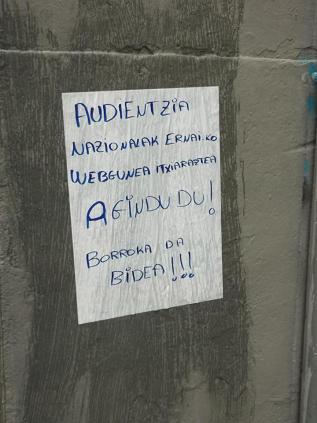 AUDIENTZIA
NAZIONALAK ERNAI.KO
WEBGUNEA ITXIARAZTEA
AGINDU DU!
BORROKA DA
BIDEA!!!